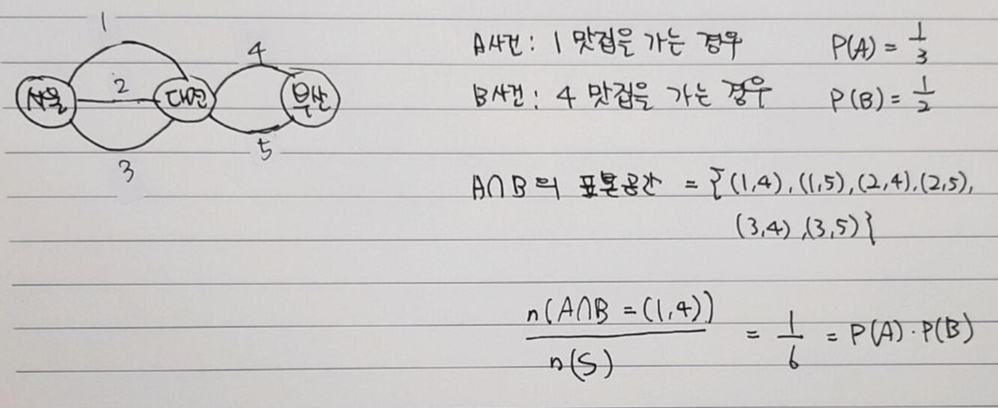 1
서울 2 대전 4 부산
3 5
A사건 : 1 맛집을 가는 경우 P(A) = 1/3
B사건 : 4 맛집을 가는 경우 P(B) = 1/2
A∩B의 표본공간 = {(1,4), (1,5), (2,4), (2,5),
(3,4), (3,5)}
n(A∩B = (1,4)) / n(S) = 1/6 = P(A)·P(B)